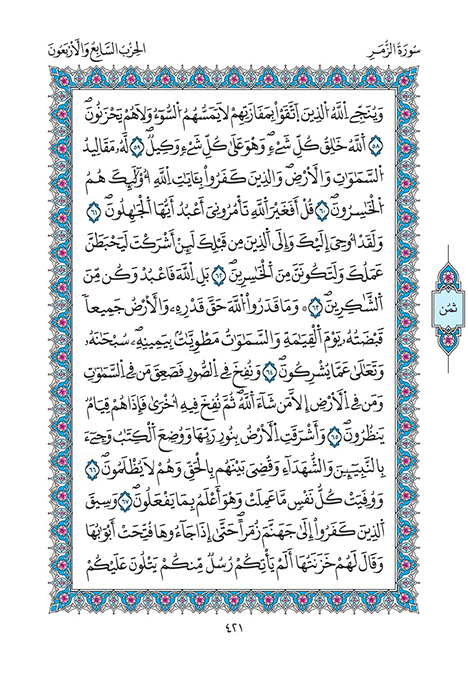 سُورَةُ الزُّمَرِ
الحِزْبُ السَّابِعُ وَالَارْبَعُونَ
وَيُنَجِّے اِ۬للَّهُ اُ۬لذِينَ اَ۪تَّقَوْاْ بِمَفَازَتِهِمْ لَا يَمَسُّهُمُ اُ۬لسُّوٓءُ وَلَا هُمْ يَحْزَنُونَۖ
٥٨ اَ۬للَّهُ خَٰلِقُ كُلِّ شَےْءٖۖ وَهُوَ عَلَىٰ كُلِّ شَےْءٖ وَكِيلٞۖ ٥٩ لَّهُۥ مَقَالِيدُ
اُ۬لسَّمَٰوَٰتِ وَالَارْضِۖ وَالذِينَ كَفَرُواْ بِـَٔايَٰتِ اِ۬للَّهِ أُوْلَٰٓئِكَ هُمُ
اُ۬لْخَٰسِرُونَۖ ٦٠ قُلَ اَفَغَيْرَ اَ۬للَّهِ تَأْمُرُونِيَ أَعْبُدُ أَيُّهَا اَ۬لْجَٰهِلُونَۖ ٦١
وَلَقَدُ ا۟وحِيَ إِلَيْكَ وَإِلَى اَ۬لذِينَ مِن قَبْلِكَ لَئِنَ اَشْرَكْتَ لَيَحْبَطَنَّ
عَمَلُكَ وَلَتَكُونَنَّ مِنَ اَ۬لْخَٰسِرِينَۖ ٦٢ بَلِ اِ۬للَّهَ فَاعْبُدْ وَكُن مِّنَ
اَ۬لشَّٰكِرِينَۖ ٦٣ ۞وَمَا قَدَرُواْ اُ۬للَّهَ حَقَّ قَدْرِهِۦ وَالَارْضُ جَمِيعاٗ
قَبْضَتُهُۥ يَوْمَ اَ۬لْقِيَٰمَةِ وَالسَّمَٰوَٰتُ مَطْوِيَّٰتُۢ بِيَمِينِهِۦۖ سُبْحَٰنَهُۥ
وَتَعَٰلَىٰ عَمَّا يُشْرِكُونَۖ ٦٤ وَنُفِخَ فِے اِ۬لصُّورِ فَصَعِقَ مَن فِے اِ۬لسَّمَٰوَٰتِ
وَمَن فِے اِ۬لَارْضِ إِلَّا مَن شَآءَ اَ۬للَّهُۖ ثُمَّ نُفِخَ فِيهِ أُخْرَىٰ فَإِذَا هُمْ قِيَامٞ
يَنظُرُونَۖ ٦٥ وَأَشْرَقَتِ اِ۬لَارْضُ بِنُورِ رَبِّهَا وَوُضِعَ اَ۬لْكِتَٰبُ وَجِےٓءَ
بِالنَّبِيٓـِٕينَ وَالشُّهَدَآءِ وَقُضِيَ بَيْنَهُم بِالْحَقِّ وَهُمْ لَا يُظْلَمُونَۖ ٦٦
وَوُفِّيَتْ كُلُّ نَفْسٖ مَّا عَمِلَتْ وَهُوَ أَعْلَمُ بِمَا يَفْعَلُونَۖ ٦٧ وَسِيقَ
اَ۬لذِينَ كَفَرُوٓاْ إِلَىٰ جَهَنَّمَ زُمَراًۖ حَتَّىٰٓ إِذَا جَآءُوهَا فُتِّحَتَ اَبْوَٰبُهَا
وَقَالَ لَهُمْ خَزَنَتُهَآ أَلَمْ يَأْتِكُمْ رُسُلٞ مِّنكُمْ يَتْلُونَ عَلَيْكُمُۥٓ
ثُمُن
٤٢١